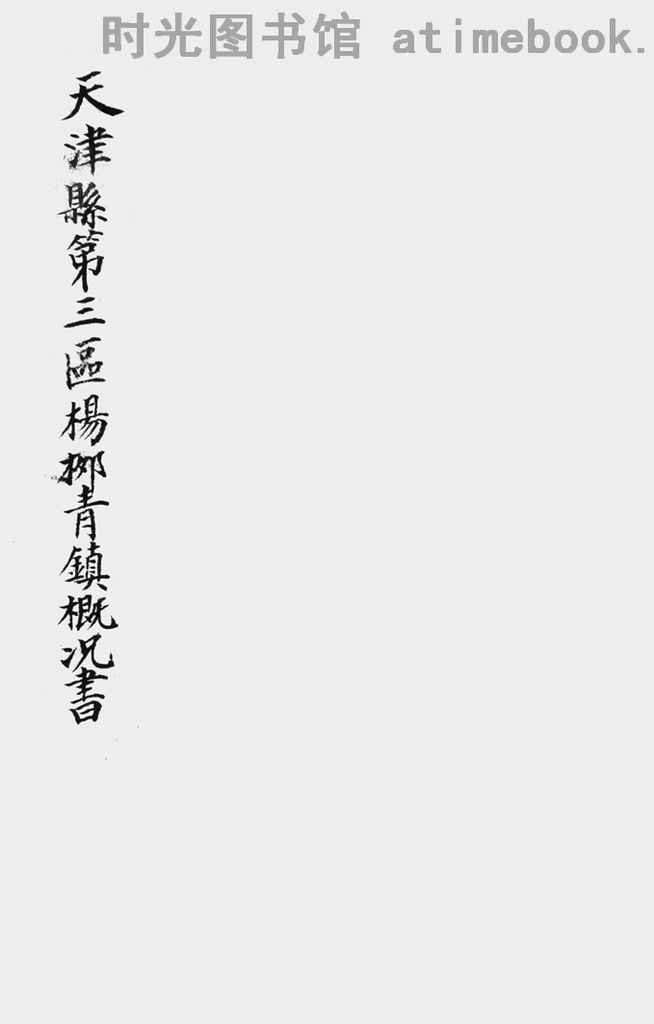 时光图书馆 atimebook.
天津縣第三區楊柳青鎮概况書